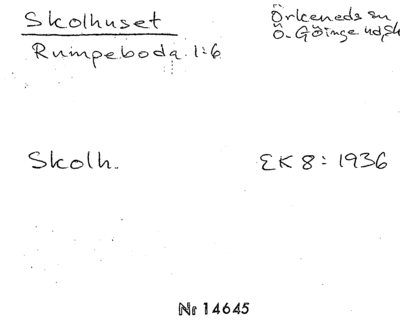 Skolhuset
Örkeneds sn
Rumpeboda 1:6
Ö. Göinge hd, Sk
Skolh.
EK 8: 1936
Nr 14645